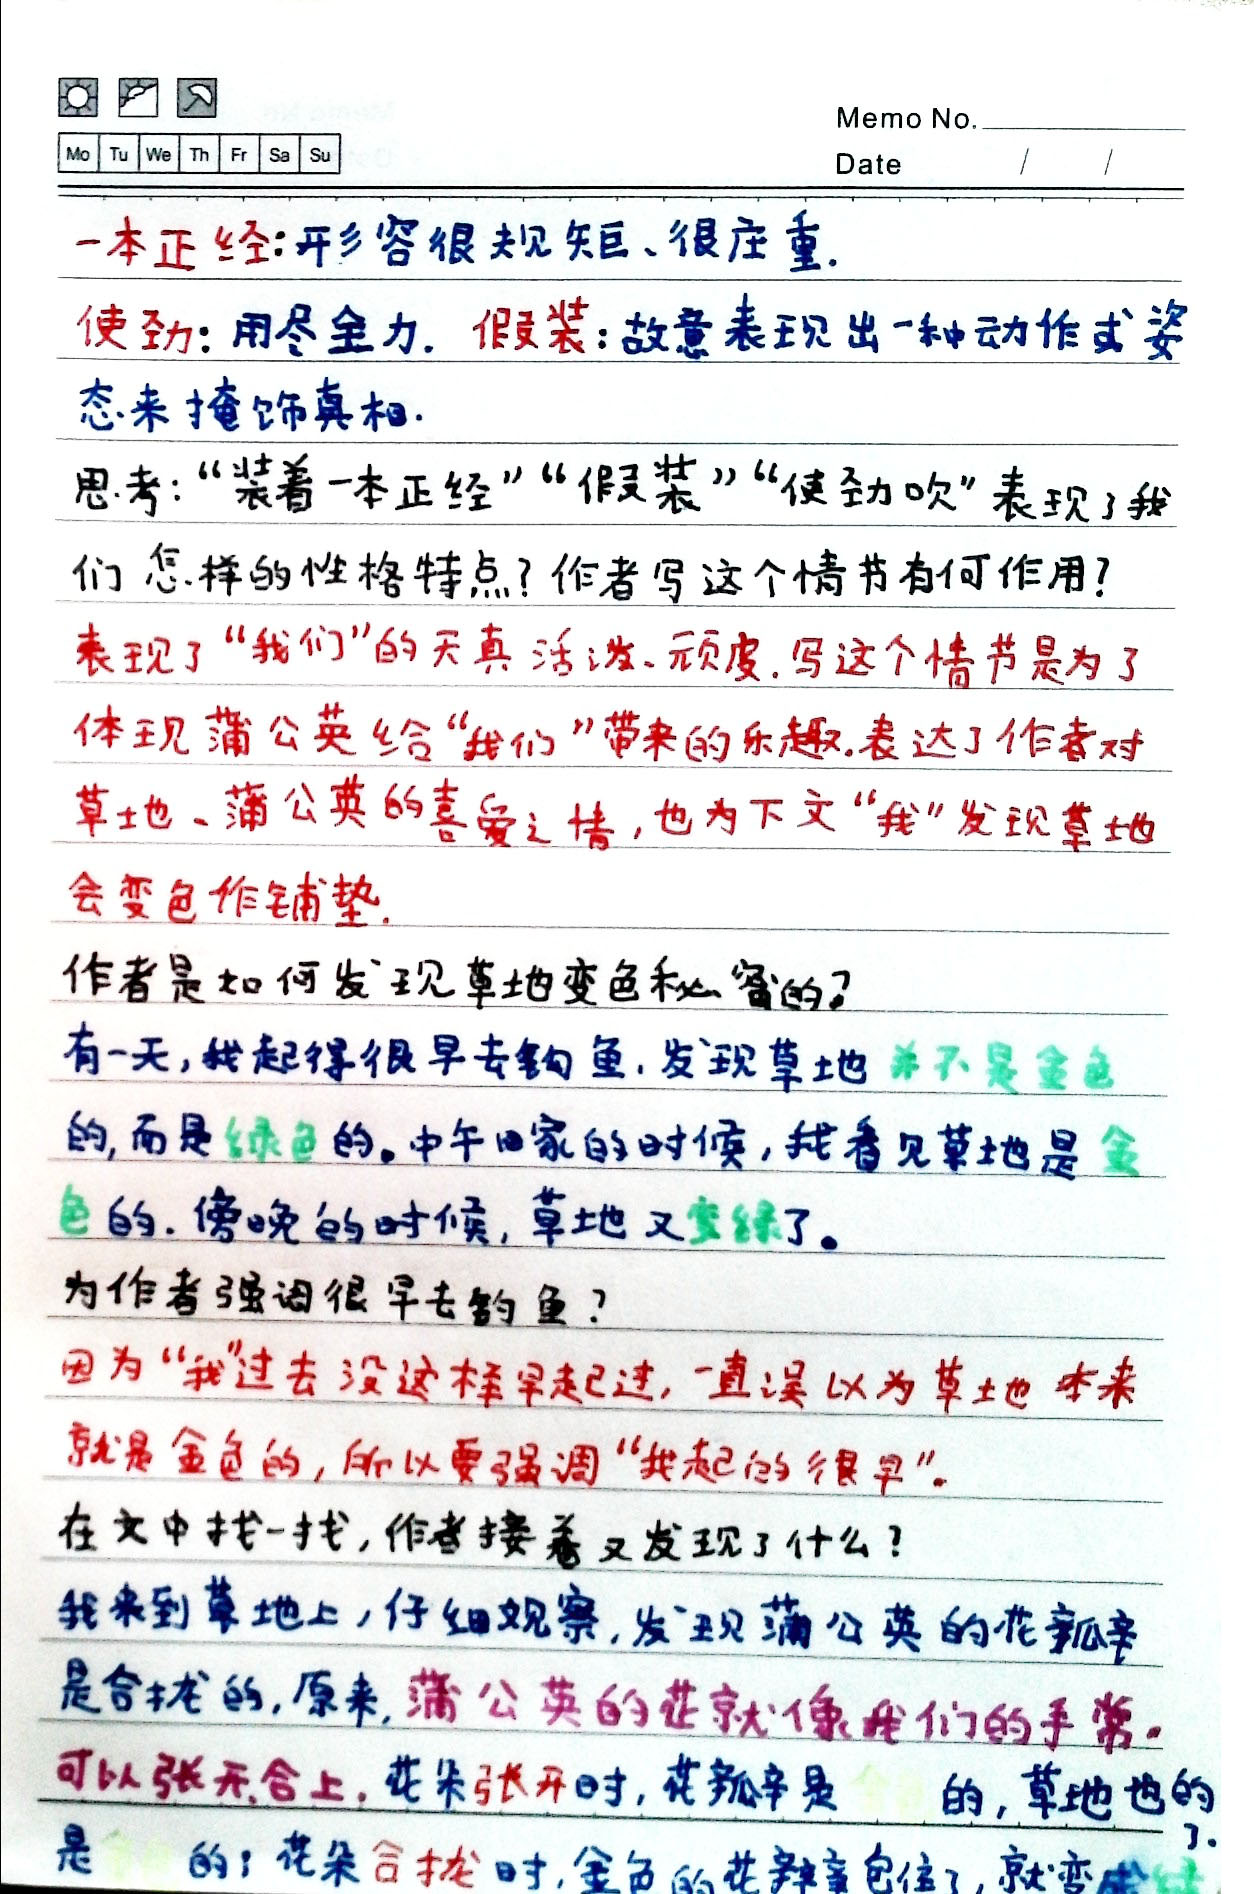 Memo No.
Mo Tu We Th Fr Sa Su
Date / /
一本正经:形容很规矩、很庄重.
使劲:用尽全力. 假装:故意表现出一种动作或姿
态来掩饰真相.
思考:“装着一本正经”“假装”“使劲吹”表现了我
们怎样的性格特点?作者写这个情节有何作用?
表现了“我们”的天真活泼、顽皮.写这个情节是为了
体现蒲公英给“我们”带来的乐趣.表达了作者对
草地、蒲公英的喜爱之情,也为下文“我”发现草地
会变色作铺垫.
作者是如何发现草地变色秘密的?
有一天,我起得很早去钓鱼.发现草地并不是金色
的,而是绿色的。中午回家的时候,我看见草地是金
色的.傍晚的时候,草地又变绿了。
为作者强调很早去钓鱼?
因为“我”过去没这样早起过,一直误以为草地本来
就是金色的,所以要强调“我起的很早”.
在文中找一找,作者接着又发现了什么?
我来到草地上,仔细观察,发现蒲公英的花瓣
是合拢的,原来,蒲公英的花就像我们的手掌.
可以张开合上.花朵张开时,花瓣是金色的,草地也的
是金色的;花朵合拢时,金色的花瓣包住了,就变成绿
了.